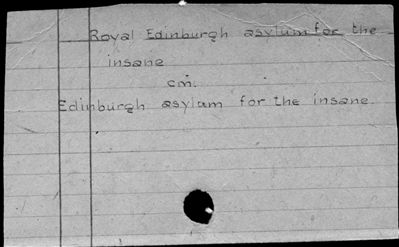 Royal Edinburgh asylum for the
insane
cm.
Edinburgh asylum for the insane.